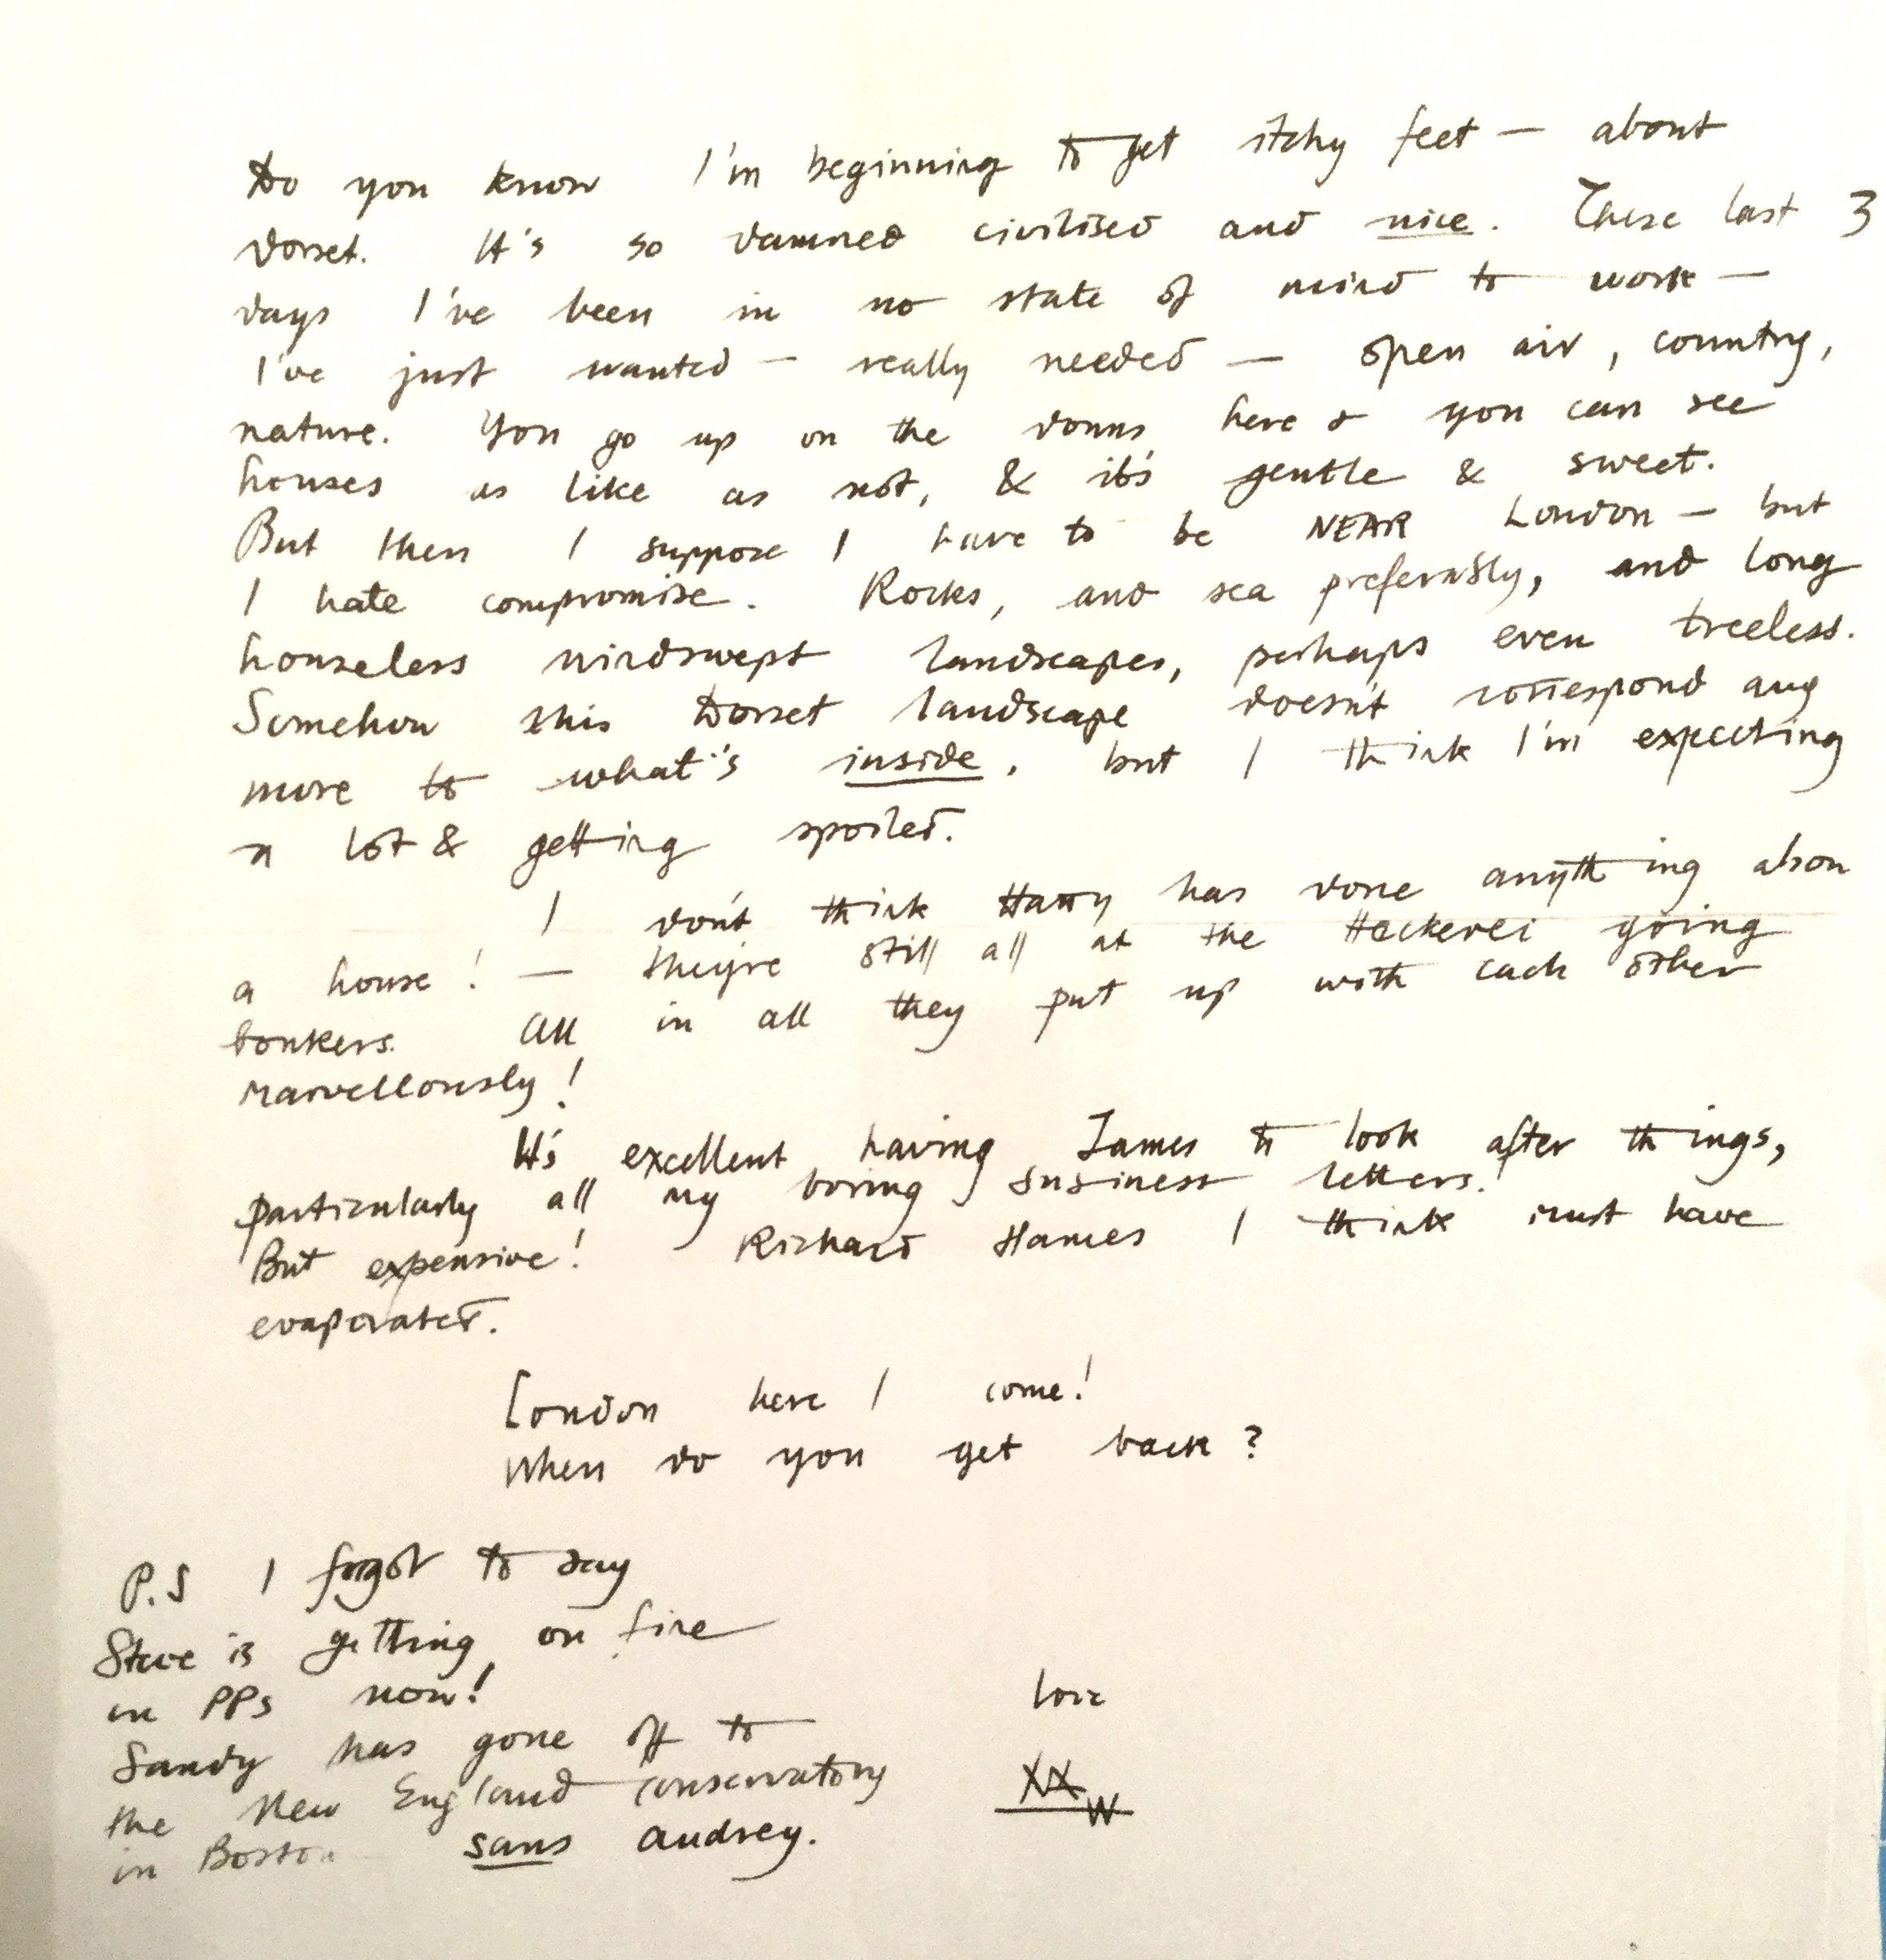 Do you know I'm beginning to get itchy feet — about
Dorset. It's so damned civilised and nice. These last 3
days I've been in no state of mind to work —
I've just wanted — really needed — open air, country,
nature. You go up on the downs here & you can see
houses as like as not, & it's gentle & sweet.
But then I suppose I have to be NEAR London — but
I hate compromise. Rocks, and sea preferably, and long
houseless windswept landscapes, perhaps even treeless.
Somehow this Dorset landscape doesn't correspond any
more to what's inside, but I think I'm expecting
a lot & getting spoiled.
I don't think Harry has done anything abou
a house! — they're still all at the Heckerei going
bonkers. All in all they put up with each other
marvellously!
It's excellent having James to look after things,
particularly all my boring business letters.
But expensive! Richard Hames I think must have
evaporated.
London here I come!
When do you get back?
P.S I forgot to say
Steve is getting on fine
in PPs now!
Sandy has gone off to
the New England conservatory
in Boston sans Audrey.
love
XX W